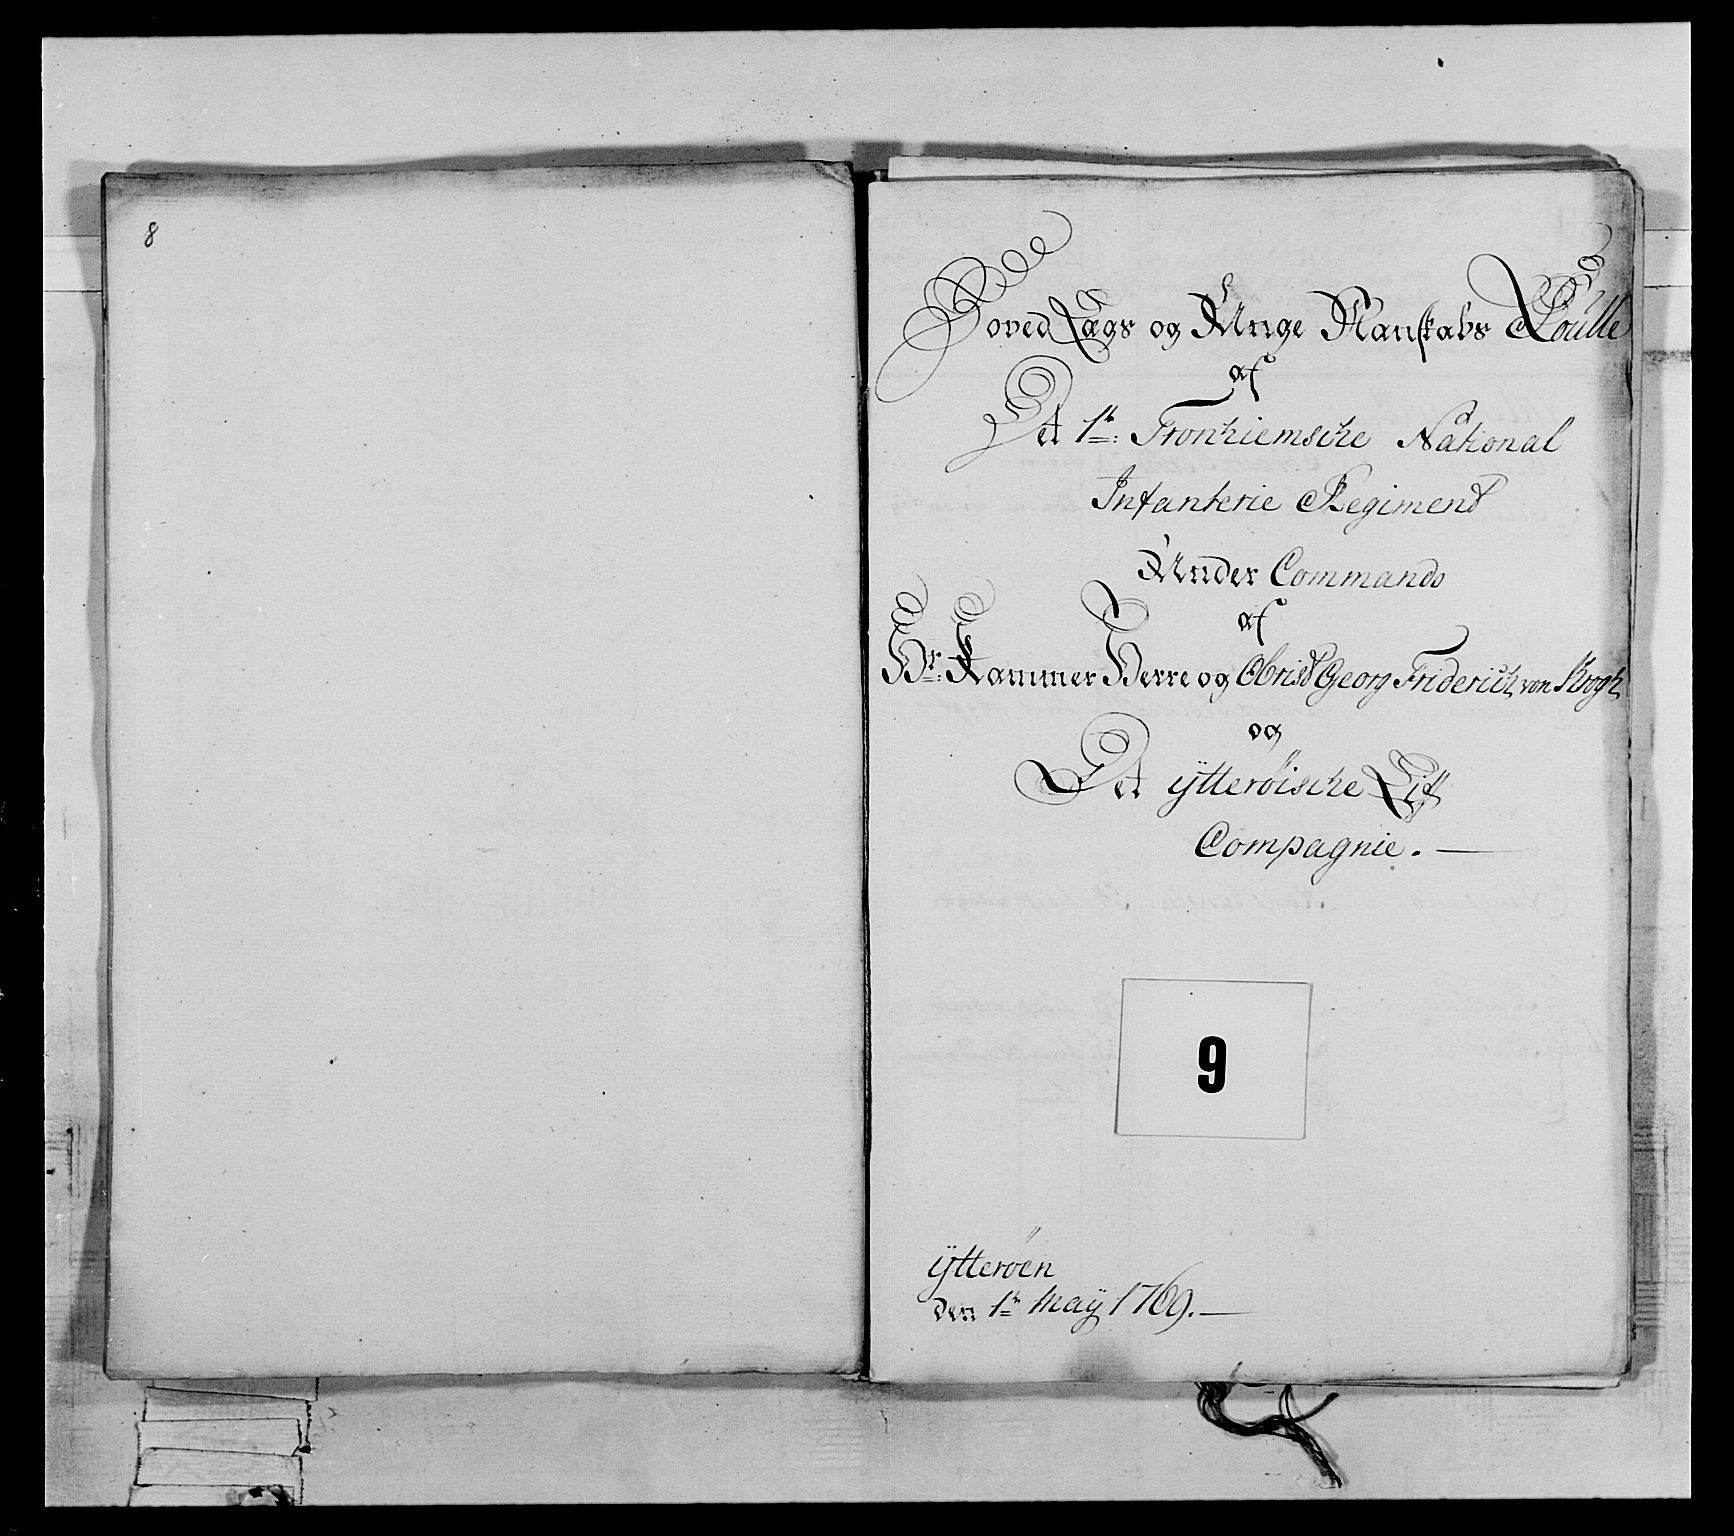 8
Hoved Lægs og Unge Mandskabs Roulle
af
Det 1te Tronhiemsche National
Infanterie Regiment
Under Commando
af
Hr: Kammer Herre og Obrist Georg Friderich von Krogh
og
Det ÿtteröische Lif
Compagnie. —
9
ÿtteröen
den 1te Maÿ 1769. —